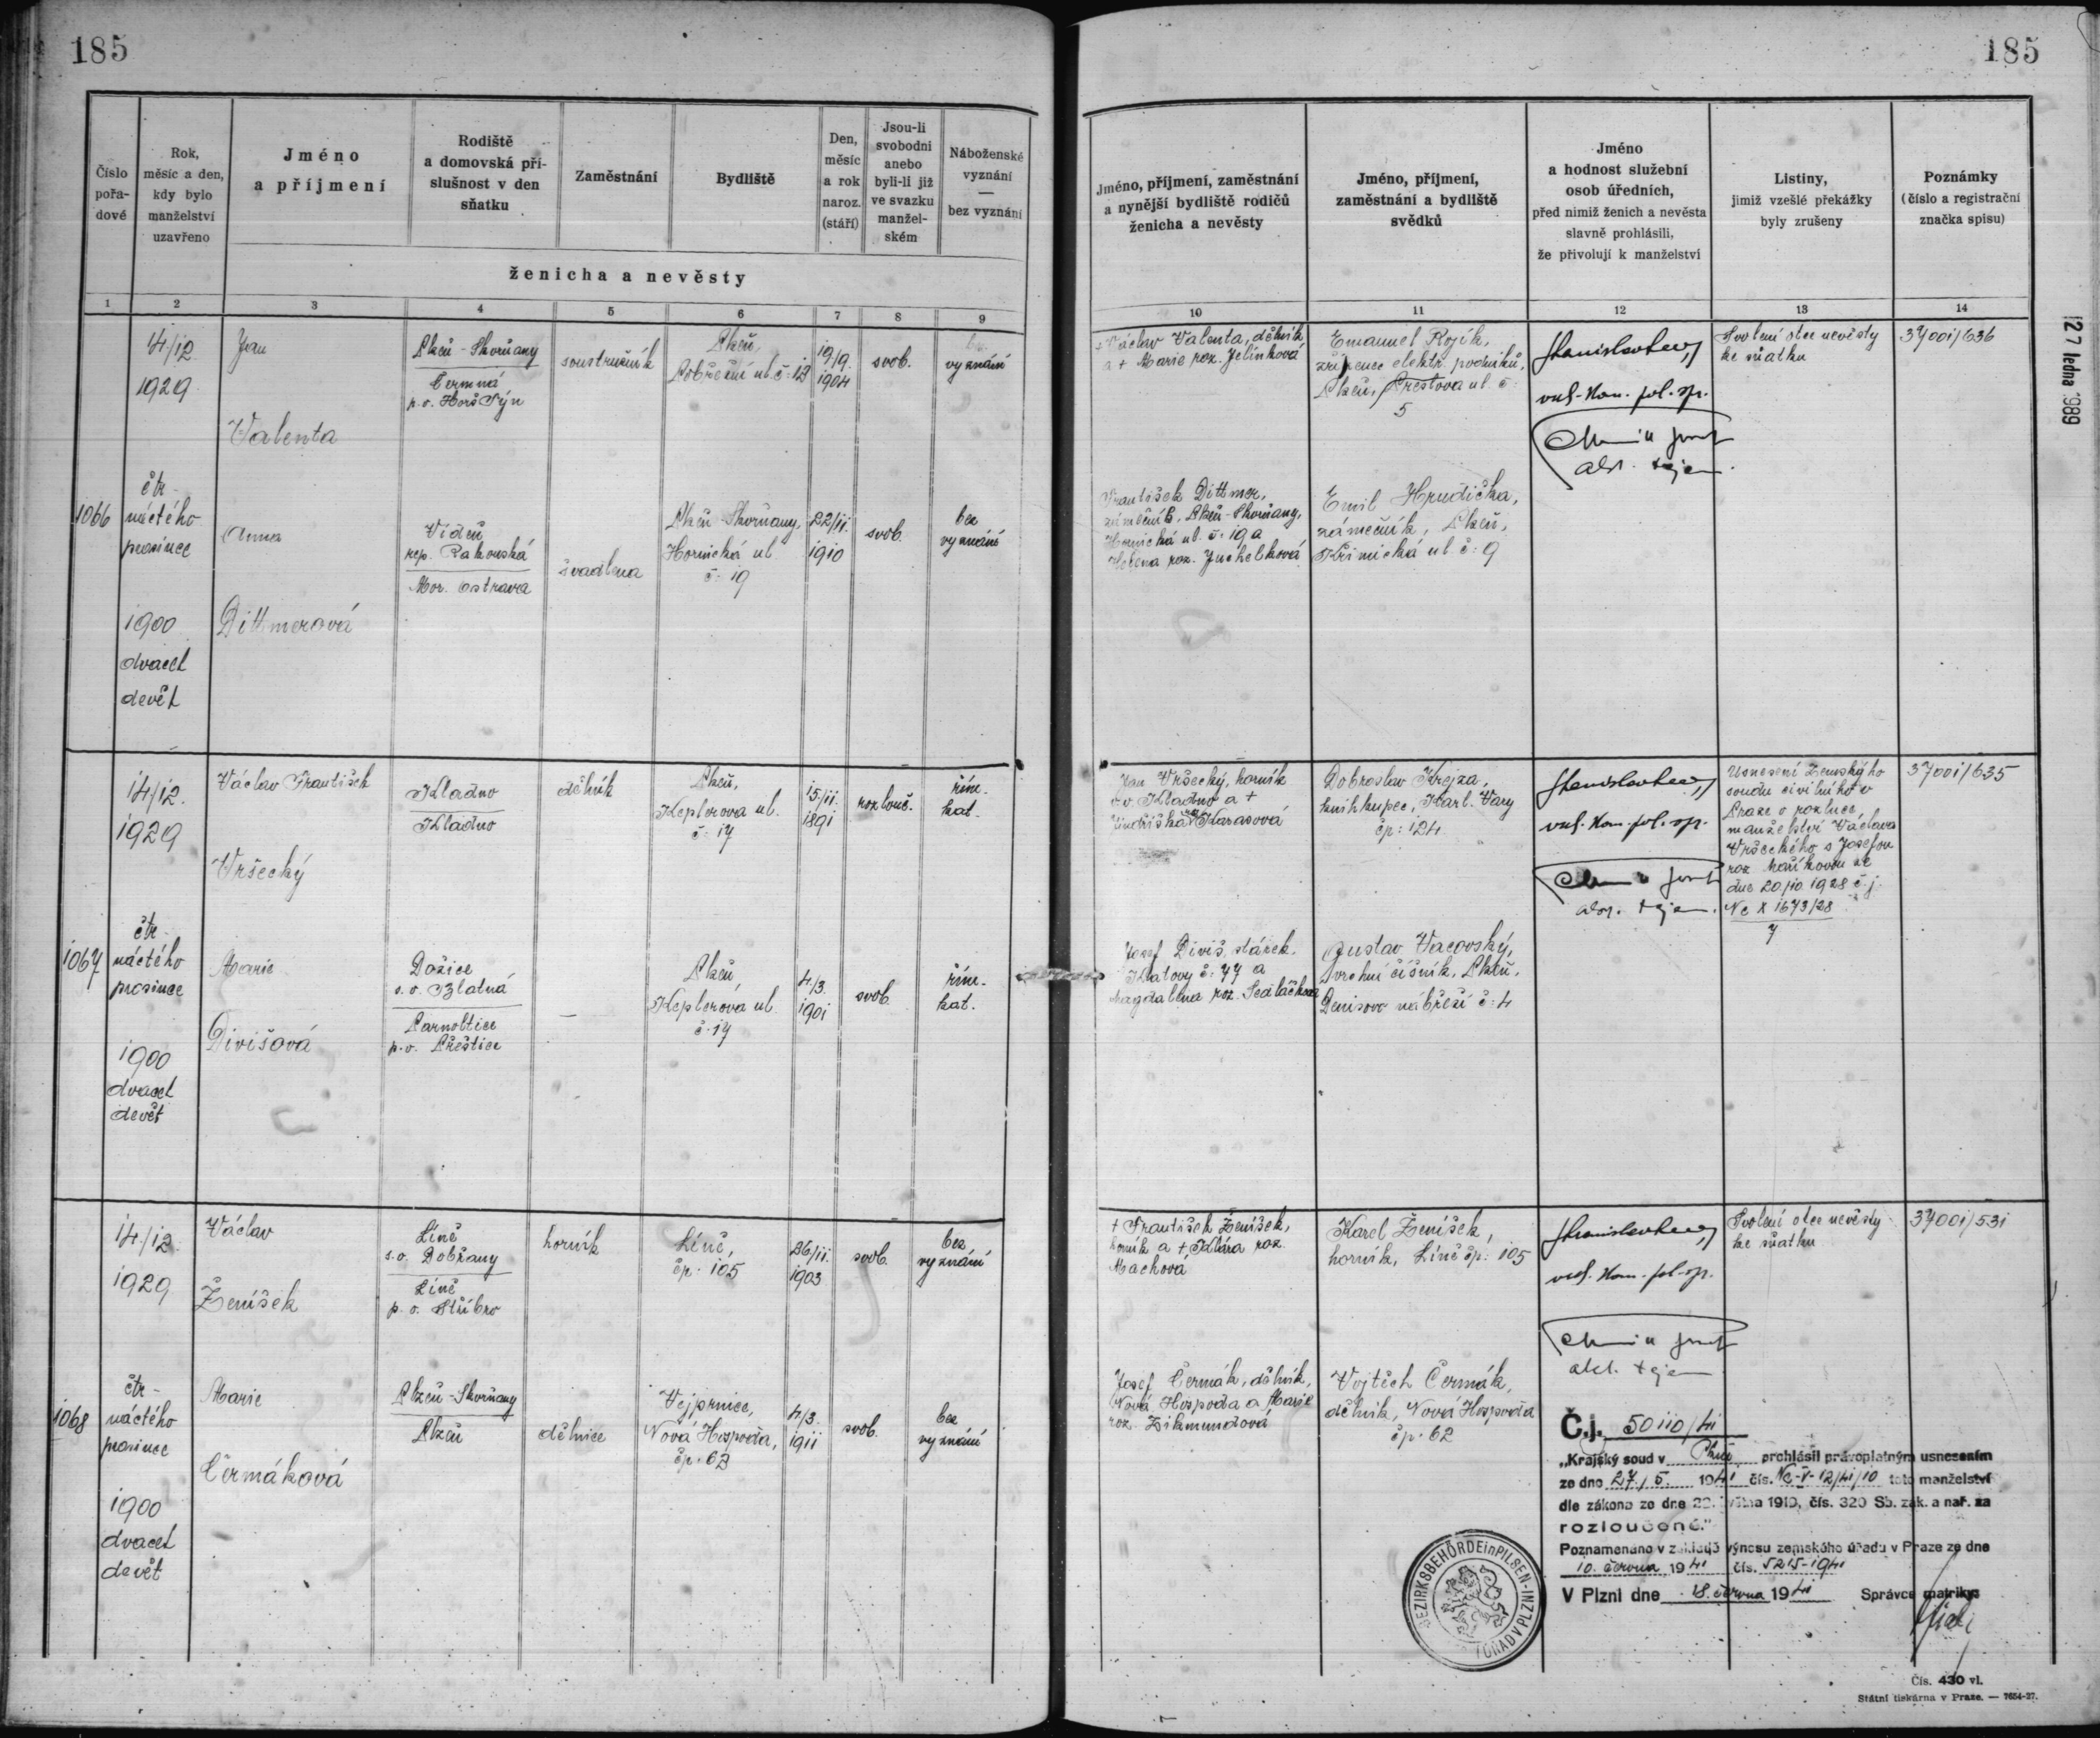 185
185
Číslo pořadové
Rok, měsíc a den, kdy bylo manželství uzavřeno
Jméno a příjmení
Rodiště a domovská příslušnost v den sňatku
Zaměstnání
Bydliště
Den, měsíc a rok naroz. (stáří)
Jsou-li svobodni anebo byli-li již ve svazku manželském
Náboženské vyznání — bez vyznání
ženicha a nevěsty
Jméno, příjmení, zaměstnání a nynější bydliště rodičů ženicha a nevěsty
Jméno, příjmení, zaměstnání a bydliště svědků
Jméno a hodnost služební osob úředních, před nimiž ženich a nevěsta slavně prohlásili, že přivolují k manželství
Listiny, jimiž vzešlé překážky byly zrušeny
Poznámky (číslo a registrační značka spisu)
1 2 3 4 5 6 7 8 9 10 11 12 13 14
27 ledna 1989
1066
14/12.
1929
čtr-
náctého
prosince
1900
dvacet
devět
Jan
Valenta
Plzeň-Skvrňany
Čermná
p.o. Horš Týn
soustružník
Plzeň,
Pobřežní ul. č: 12
19/9.
1904
svob.
bez
vyznání
+ Václav Valenta, dělník
a + Marie roz. Jelínková
Emanuel Rojík,
zřízenec elektr. podniků,
Plzeň, Prešova ul. č:
5
vrch. kom. pol. spr.
Svolení otce nevěsty
ke sňatku
37001/636
Anna
Dittmerová
Vídeň
rep. Rakouská
Mor. Ostrava
švadlena
Plzeň-Skvrňany,
Hornická ul.
č: 19
22/11.
1910
svob.
bez
vyznání
František Dittmer,
zámečník, Plzeň-Skvrňany,
Hornická ul. č: 19 a
Helena roz. Juchelková
Emil Hrudička,
zámečník, Plzeň,
Křimická ul č: 9
1067
14/12.
1929
čtr-
náctého
prosince
1900
dvacet
devět
Václav František
Vršecký
Kladno
Kladno
dělník
Plzeň,
Keplerova ul.
č: 17
15/11.
1891
rozlouč.
řím.
kat.
Jan Vršecký, horník
v v. Kladno a +
Jindřiška roz. Karasová
Dobroslav Krejza,
knihkupec, Karl. Vary
čp: 124
vrch. kom. pol. spr.
Usnesení Zemského
soudu civilního v
Praze o rozluce
manželství Václava
Vršeckého s Josefou
roz.
dne 20/10 1928 č.j.
Nc X 1673/28
7
37001/635
Marie
Divišová
Dožice
s.o. Blatná
Parnoltice
p.o. Přeštice
—
Plzeň,
Keplerova ul.
č: 17
4/3.
1901
svob.
řím.
kat.
Josef Diviš, stárek,
Klatovy č: 77 a
Magdalena roz. Sedláčková
Gustav Vacovský,
vrchní číšník, Plzeň,
Denisovo nábřeží č: 4
1068
14/12.
1929
čtr-
náctého
prosince
1900
dvacet
devět
Václav
Ženíšek
Líně
s.o. Dobřany
Líně
p.o. Stříbro
horník
Líně,
čp: 105
26/11.
1903
svob.
bez
vyznání
+ František Ženíšek,
horník a + Klára roz.
Machová
Karel Ženíšek,
horník, Líně čp: 105
vrch. kom. pol. spr.
Svolení otce nevěsty
ke sňatku
37001/531
Marie
Čermáková
Plzeň-Skvrňany
Plzeň
dělnice
Vejprnice,
Nová Hospoda,
čp: 62
4/3.
1911
svob.
bez
vyznání
Josef Čermák, dělník,
Nová Hospoda a Marie
roz. Zikmundová
Vojtěch Čermák,
dělník, Nová Hospoda
čp. 62
Č.j. 50110/41
„Krajský soud v Plzni prohlásil právoplatným usnesením
ze dne 27./5. 1941 čís. Nc-V-12/41/10 toto manželství
dle zákona ze dne 22. května 1919, čís. 320 Sb. zák. a nař. za
rozloučené."
Poznamenáno v základě výnosu zemského úřadu v Praze ze dne
10. června 1941 čís. 5215-1941
V Plzni dne 18. června 1941 Správce matriky:
BEZIRKSBEHÖRDE in PILSEN
Čís. 430 vl.
Státní tiskárna v Praze. — 7654-27.